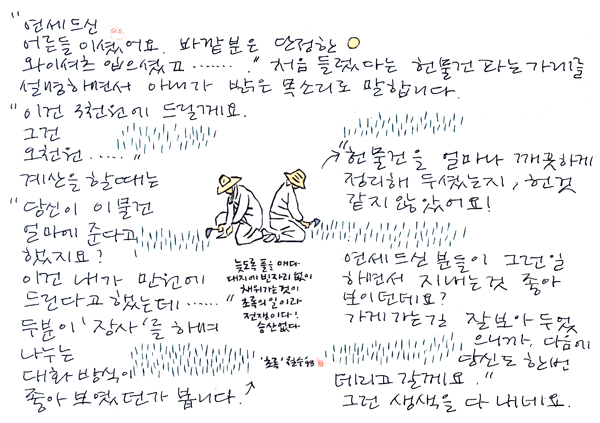 "연세드신
어른들이셨어요. 바깥분은 단정한
와이셔츠 입으셨고 ……." 처음 들렀다는 헌물건 파는 가게를
설명하면서 아내가 밝은 목소리로 말합니다.
"이건 3천원에 드릴게요.
그건
오천원……"
계산을 할때는
"당신이 이 물건
얼마에 준다고
했지요?
이건 내가 만원에
드린다고 했는데……"
두분이 '장사'를 하며
나누는
대화 방식이
좋아 보였던가 봅니다.
"헌물건을 얼마나 깨끗하게
정리해 두셨는지, 헌것
같지 않았어요!
연세드실 분들이 그런일
하면서 지내는것 좋아
보이던데요?
가게 가는길 잘 보아 두었
으니까, 다음에
당신도 한번
데리고 갈게요."
그런 생색을 다 내네요.
늦도록 풀을 매다
대지에 빈자리 없이
채워가는것이
초록의 일이라
전쟁이다!
승산없다
'초록' 철수 93